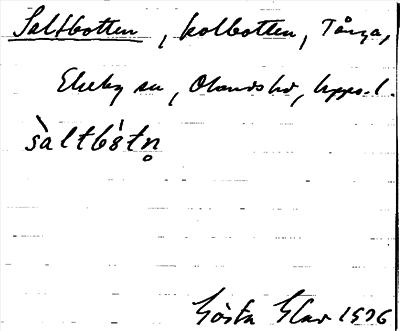 Saltbotten, kolbotten, Tånga,
Ekeby sn, Olands hd, Upps. l.
sàltbótn̥
Gösta Elav 1926